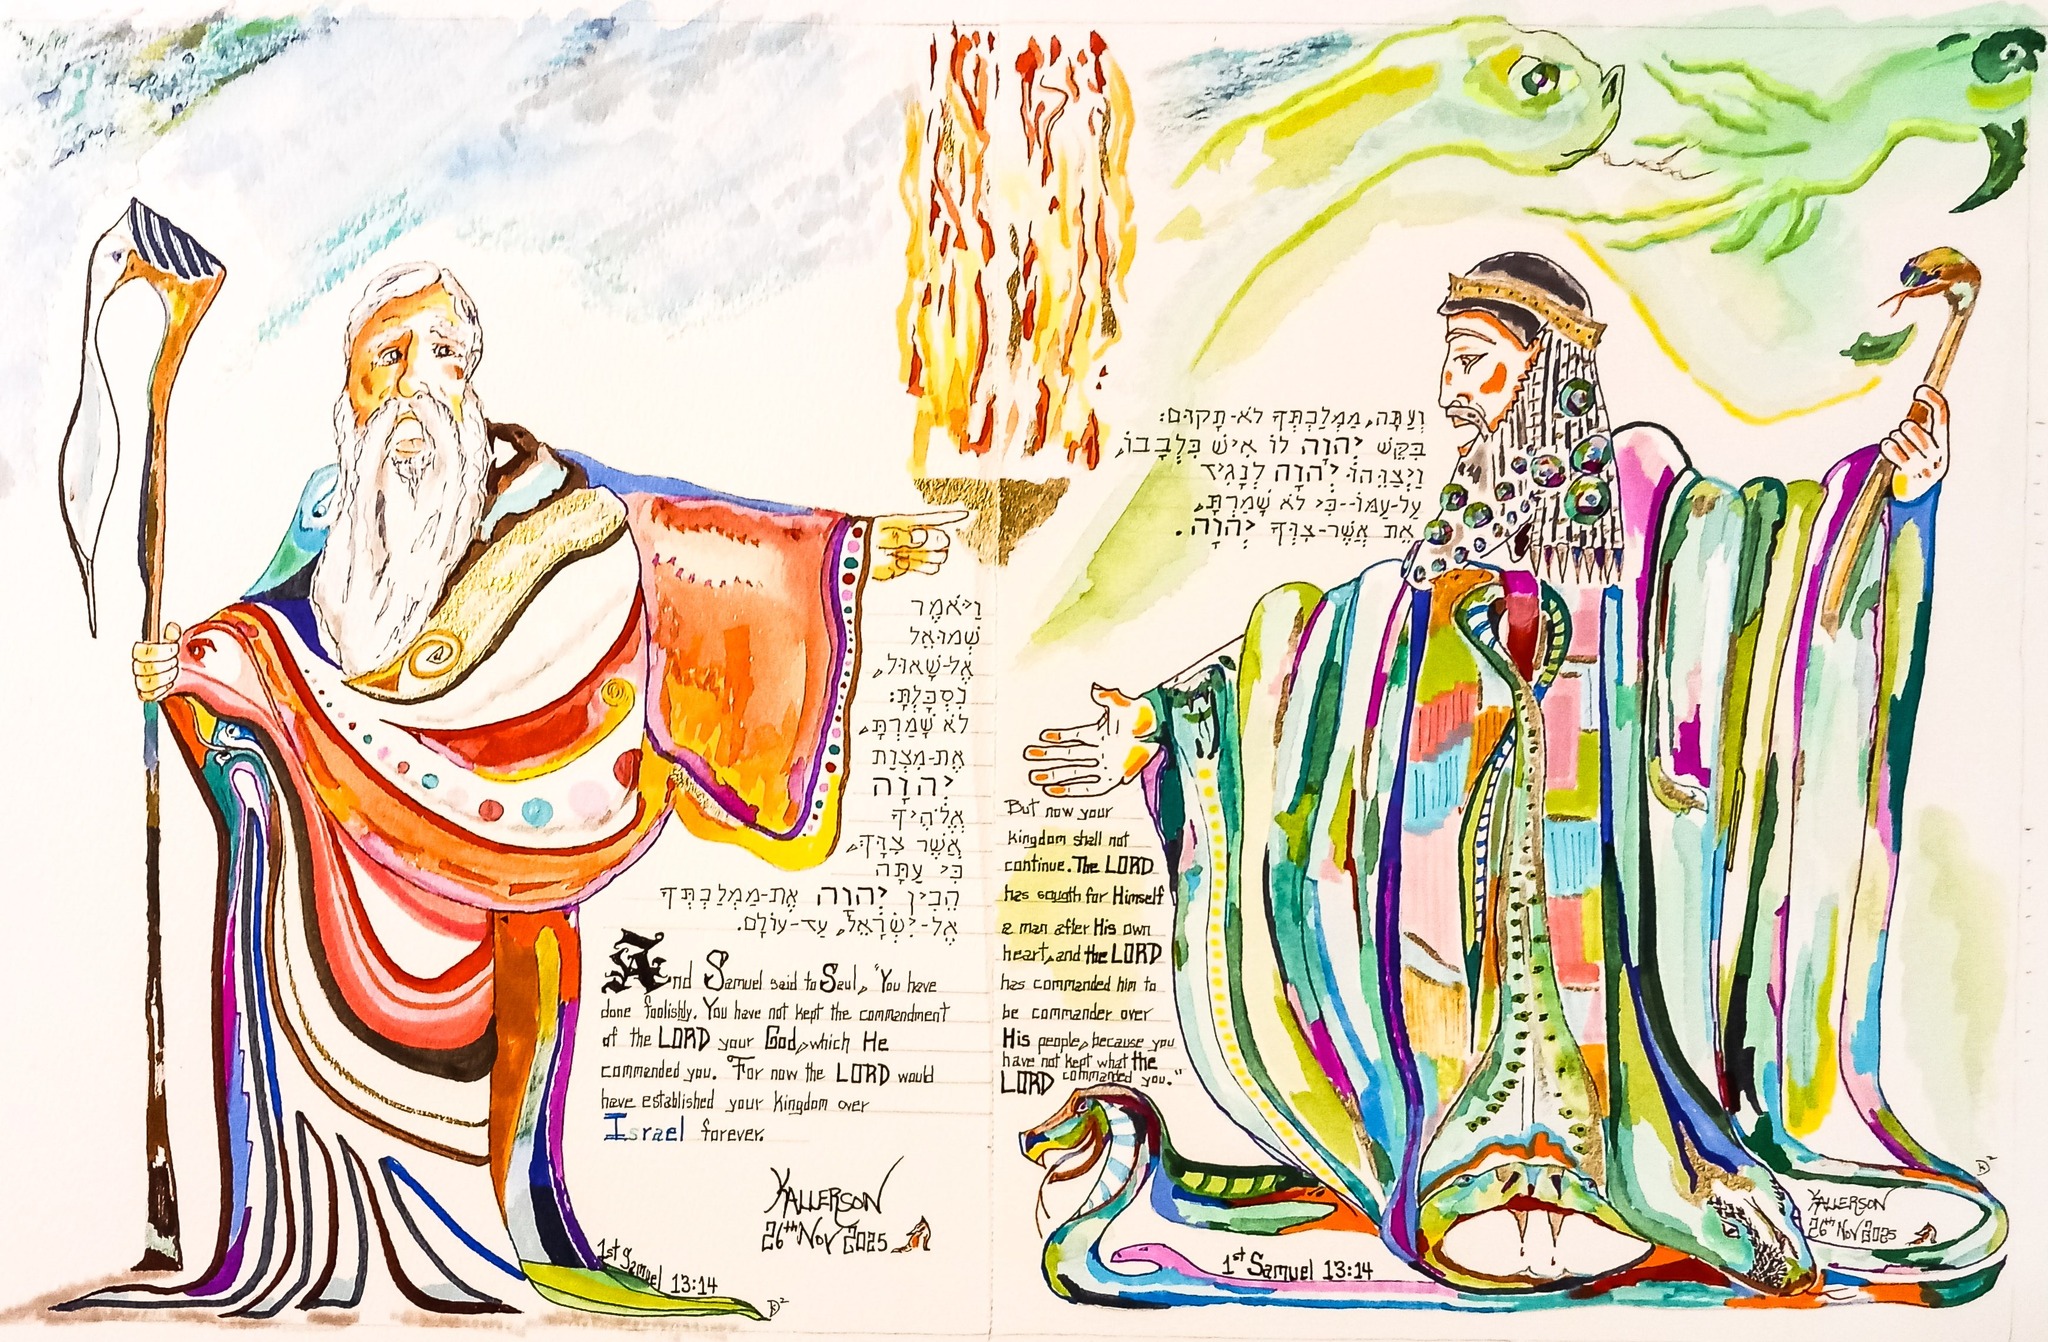 וַיֹּאמֶר
שְׁמוּאֵל
אֶל-שָׁאוּל,
נִסְכָּלְתָּ:
לֹא שָׁמַרְתָּ,
אֶת-מִצְוַת
יְהוָה
אֱלֹהֶיךָ
אֲשֶׁר צִוָּךְ,
כִּי עַתָּה
הֵכִין יְהוָה אֶת-מַמְלַכְתְּךָ
אֶל-יִשְׂרָאֵל, עַד-עוֹלָם.
And Samuel said to Saul, "You have
done foolishly. You have not kept the commandment
of the LORD your God, which He
commanded you. For now the LORD would
have established your kingdom over
Israel forever.
KALLERSON
26th Nov 2025
1st Samuel 13:14
וְעַתָּה, מַמְלַכְתְּךָ לֹא-תָקוּם:
בִּקֵּשׁ יְהוָה לוֹ אִישׁ כִּלְבָבוֹ,
וַיְצַוֵּהוּ יְהוָה לְנָגִיד
עַל-עַמּוֹ--כִּי לֹא שָׁמַרְתָּ,
אֵת אֲשֶׁר-צִוְּךָ יְהוָה.
But now your
kingdom shall not
continue. The LORD
has sougth for Himself
a man after His own
heart, and the LORD
has commanded him to
be commander over
His people, because you
have not kept what the
LORD commanded you."
1st Samuel 13:14
KALLERSON
26th Nov 2025